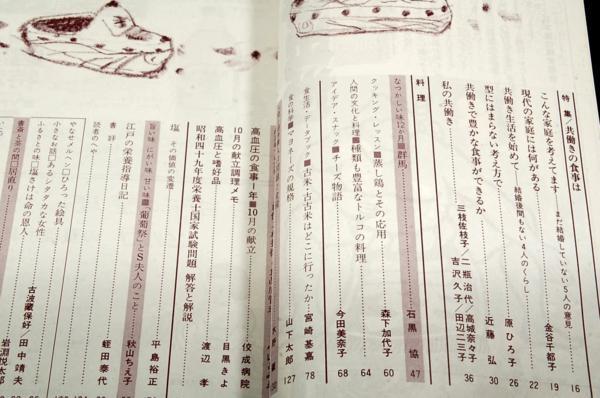 特集・共働きの食事は
まだ結婚していない5人の意見 16
こんな家庭を考えてます 金谷千都子 19
現代の家庭には何がある 22
共働き生活を始めて 結婚後間もない4人のくらし 26
型にはまらない考え方で 原ひろ子 30
共働きで豊かな食事ができるか 近藤弘
私の共働き 三枝佐枝子/二瓶治代/高城奈々子 吉沢久子/田辺二三子 36
料理
なつかしい味12か月■群馬 石黒協 47
クッキング・レッスン■蒸し鶏とその応用 森下加代子 60
人間の文化と料理■種類も豊富なトルコの料理 64
アイデア・スナック■チーズ物語 今田美奈子 68
食生活・データブック■古米・古古米はどこに行ったか 宮崎基嘉 78
食の科学■マヨネーズの規格 山下太郎 127
高血圧の食事1年■10月の献立 佼成病院
10月の献立調理メモ 目黒きよ
高血圧と嗜好品 渡辺孝
昭和四十九年度栄養士国家試験問題 解答と解説
塩 その価値の変遷 平島裕正
旨い味 にがい味 甘い味■「葡萄祭」とS夫人のこと 秋山ちえ子
江戸の栄養指導日記 蛭田泰代
書評
読者のへや
やなせメルヘン□ひろった絵具
小さなお話□ふるシタタカな女性
ふるさとの味□塩さけは命の恩人 古波蔵保好/田中靖夫
書斎と茶の間□居直り 岩淵悦太郎